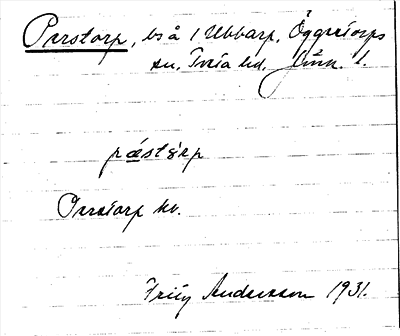 Perstorp, bs å 1 Ubbarp, Öggestorps
sn, Tveta hd, Jönk. l.
pæstərp
Perstorp kv.
Fritz Andersson 1931.